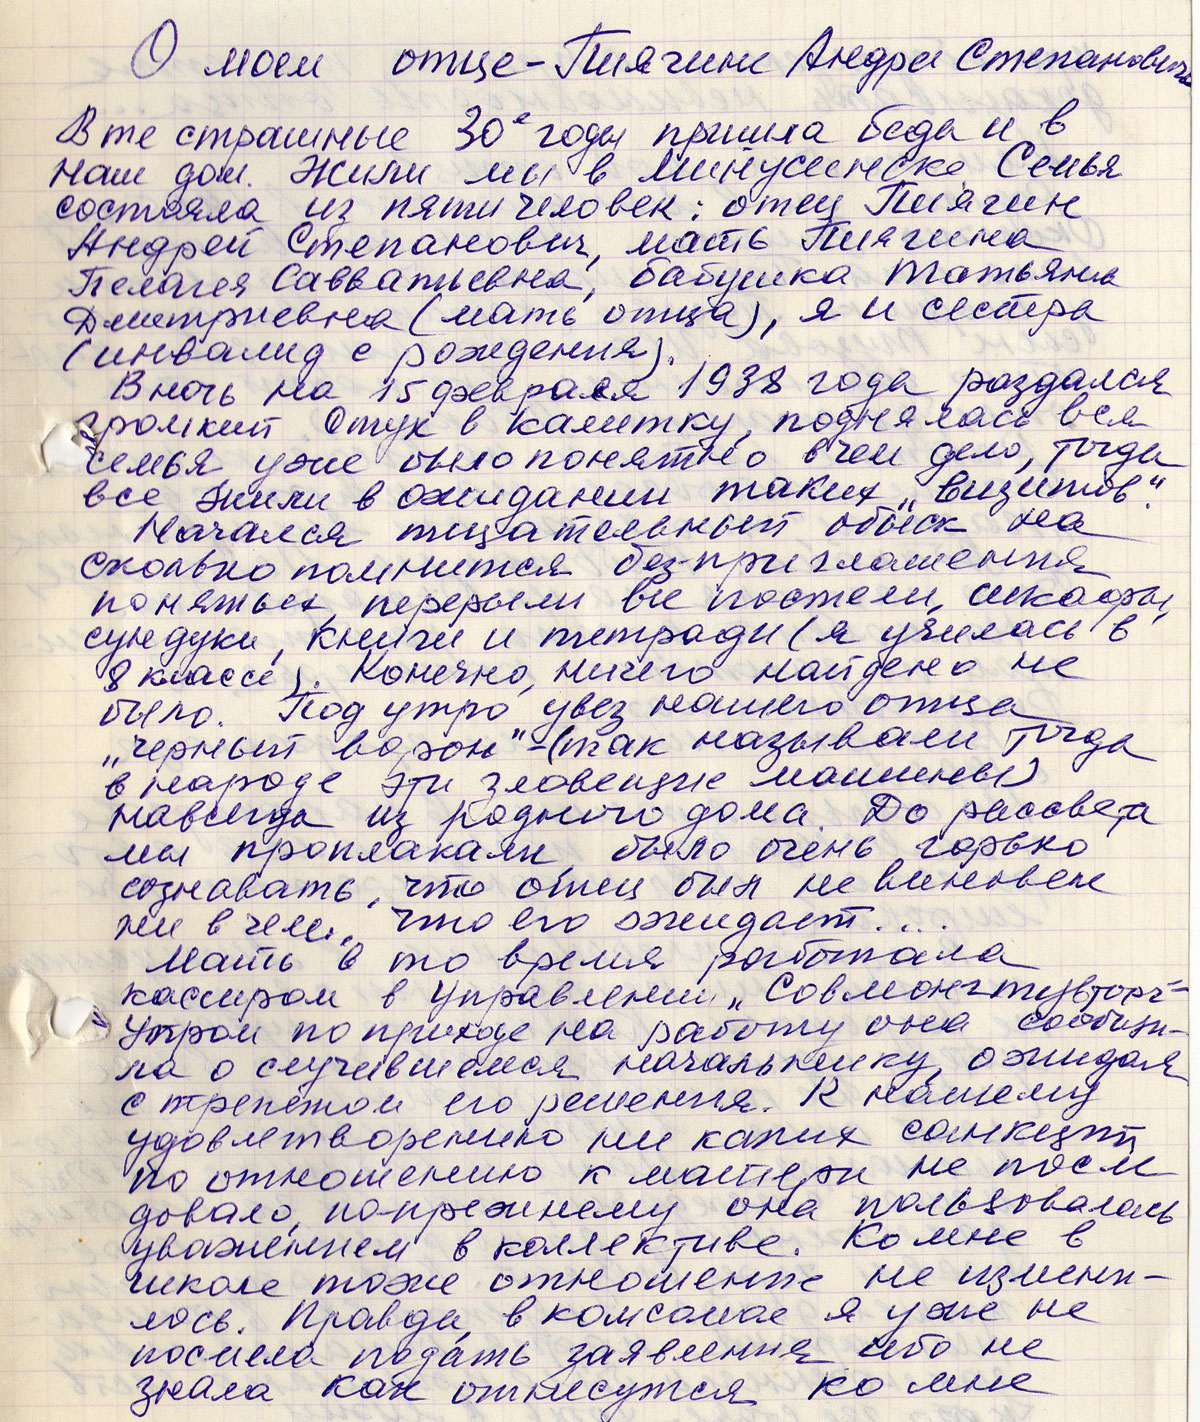 О моем отце - Пиягине Андрее Степановиче
В те страшные 30е годы пришла беда и в
наш дом. Жили мы в Минусинске. Семья
состояла из пяти человек: отец Пиягин
Андрей Степанович, мать Пиягина
Пелагея Савватьевна, бабушка Татьяна
Дмитриевна (мать отца), я и сестра
(инвалид с рождения).
В ночь на 15 февраля 1938 года раздался
громкий стук в калитку, поднялась вся
семья уже было понятно в чем дело, тогда
все жили в ожидании таких „визитов“.
Начался тщательный обыск на
сколько помнится без приглашения
понятых, перерыли все постели, шкафы,
сундуки, книги и тетради (я училась в
8 классе). Конечно, ничего найдено не
было. Под утро увез нашего отца
„черный ворон“ - (так называли тогда
в народе эти зловещие машины)
навсегда из родного дома. До рассвета
мы проплакали, было очень горько
сознавать, что отец был не виновен
ни в чем, что его ожидает....
Мать в то время работала
кассиром в управлении „Совмонгтувторг“
Утром по приходе на работу она сообщи-
ла о случившемся начальнику, ожидая
с трепетом его решения. К нашему
удовлетворению ни каких санкций
по отношению к матери не после
довало, по-прежнему она пользовалась
уважением в коллективе. Ко мне в
школе тоже отношение не измени-
лось. Правда, в комсомол я уже не
посмела подать заявления ибо не
знала как отнесутся ко мне